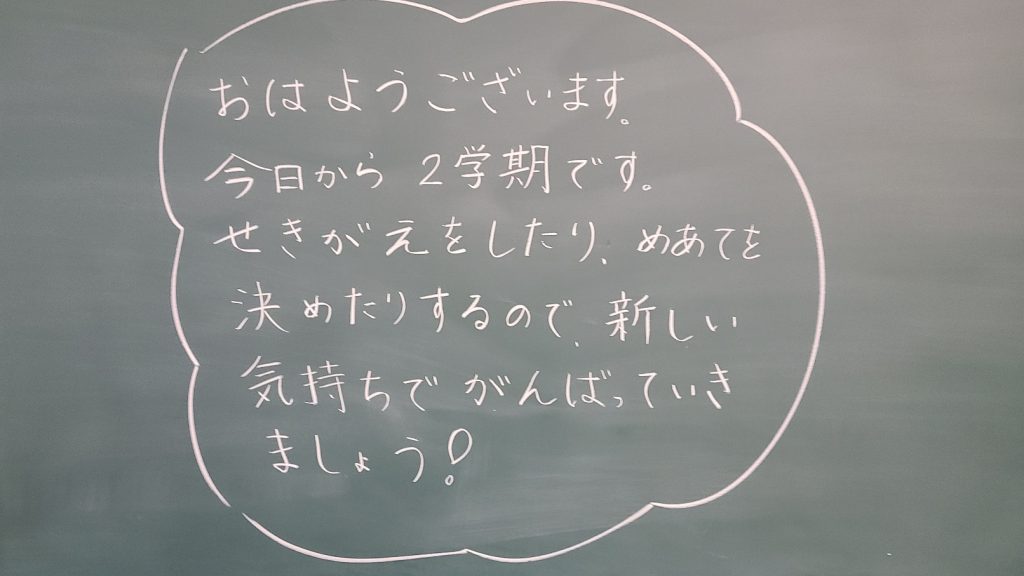 おはようございます。
今日から 2学期です。
せきがえをしたり、めあてを
決めたりするので、新しい
気持ちで がんばっていき
ましょう!